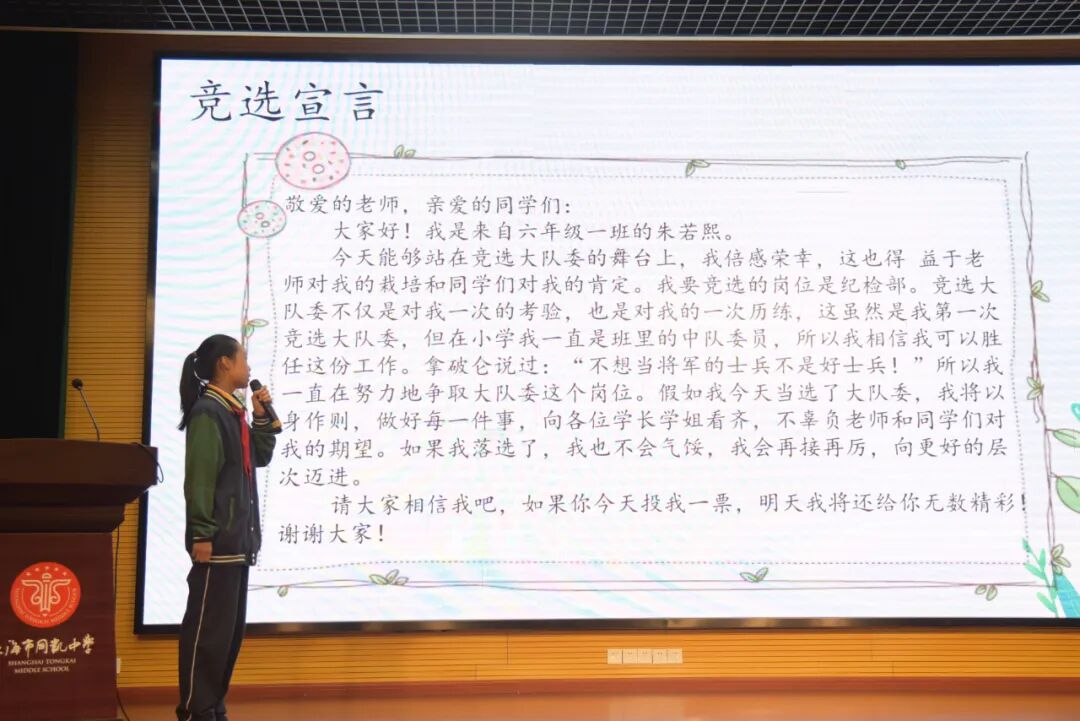 竞选宣言
敬爱的老师，亲爱的同学们：
大家好！我是来自六年级一班的朱若熙。
今天能够站在竞选大队委的舞台上，我倍感荣幸，这也得 益于老
师对我的栽培和同学们对我的肯定。我要竞选的岗位是纪检部。竞选大
队委不仅是对我一次的考验，也是对我的一次历练，这虽然是我第一次
竞选大队委，但在小学我一直是班里的中队委员，所以我相信我可以胜
任这份工作。拿破仑说过：“不想当将军的士兵不是好士兵！”所以我
一直在努力地争取大队委这个岗位。假如我今天当选了大队委，我将以
身作则，做好每一件事，向各位学长学姐看齐，不辜负老师和同学们对
我的期望。如果我落选了，我也不会气馁，我会再接再厉，向更好的层
次迈进。
请大家相信我吧，如果你今天投我一票，明天我将还给你无数精彩！
谢谢大家！
上海市同凯中学
SHANGHAI TONGKAI
MIDDLE SCHOOL